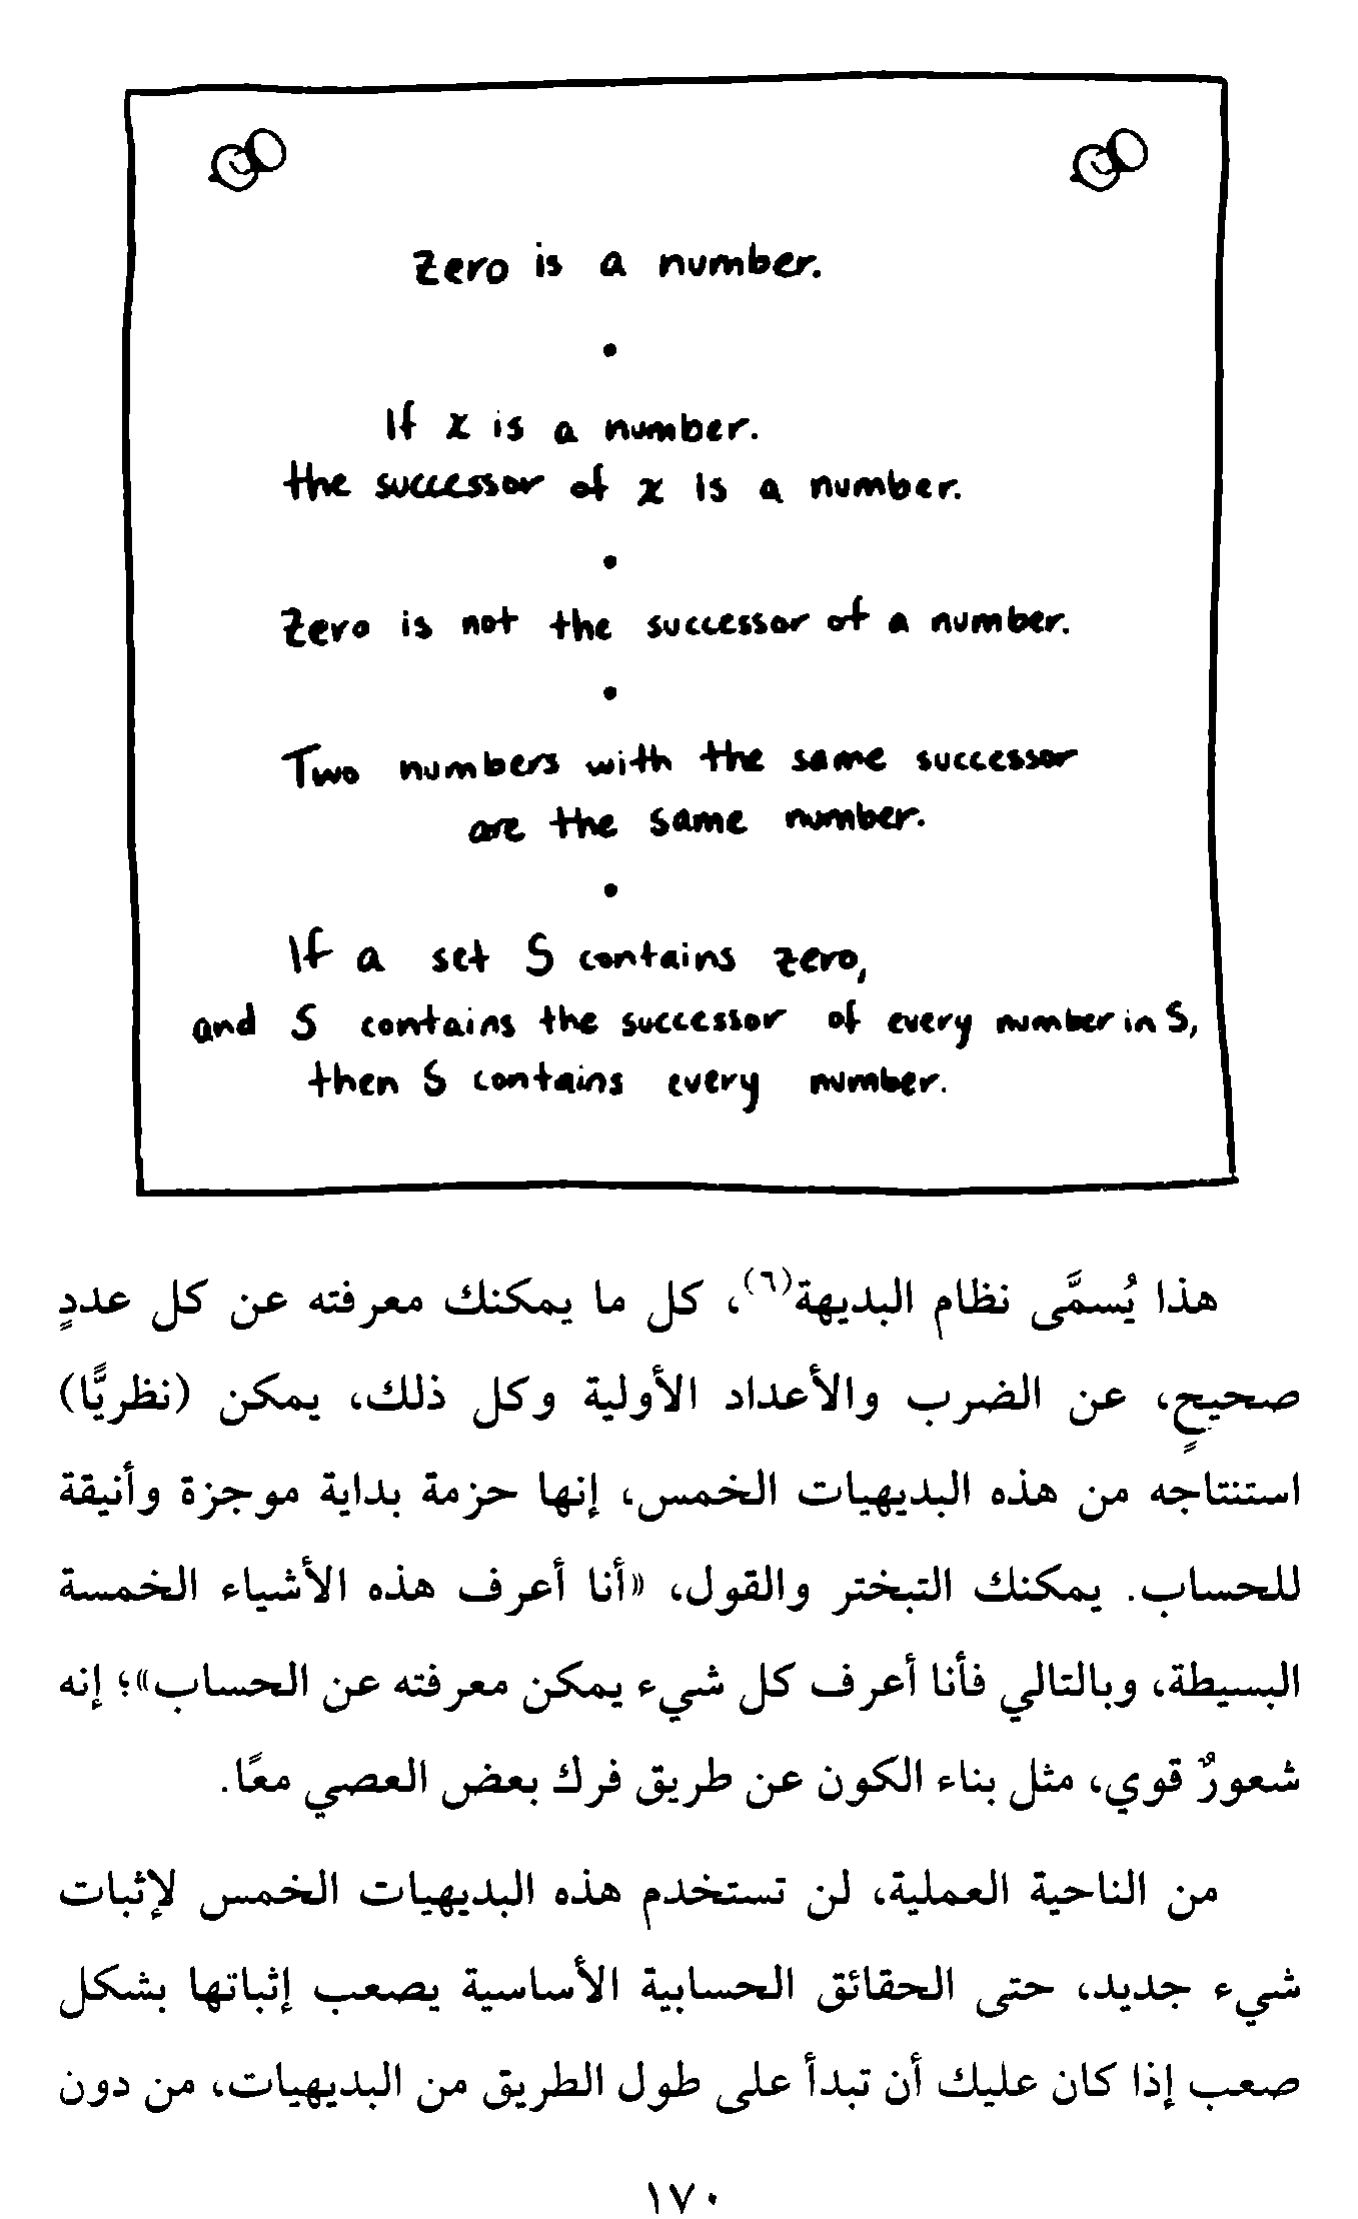 Zero is a number.
•
If x is a number.
the successor of x is a number.
•
Zero is not the successor of a number.
•
Two numbers with the same successor
are the same number.
•
If a set S contains zero,
and S contains the successor of every number in S,
then S contains every number.
هذا يُسمَّى نظام البديهة(٦)، كل ما يمكنك معرفته عن كل عددٍ
صحيحٍ، عن الضرب والأعداد الأولية وكل ذلك، يمكن (نظريًّا)
استنتاجه من هذه البديهيات الخمس، إنها حزمة بداية موجزة وأنيقة
للحساب. يمكنك التبختر والقول، «أنا أعرف هذه الأشياء الخمسة
البسيطة، وبالتالي فأنا أعرف كل شيء يمكن معرفته عن الحساب»؛ إنه
شعورٌ قوي، مثل بناء الكون عن طريق فرك بعض العصي معًا.
من الناحية العملية، لن تستخدم هذه البديهيات الخمس لإثبات
شيء جديد، حتى الحقائق الحسابية الأساسية يصعب إثباتها بشكل
صعب إذا كان عليك أن تبدأ على طول الطريق من البديهيات، من دون
١٧٠